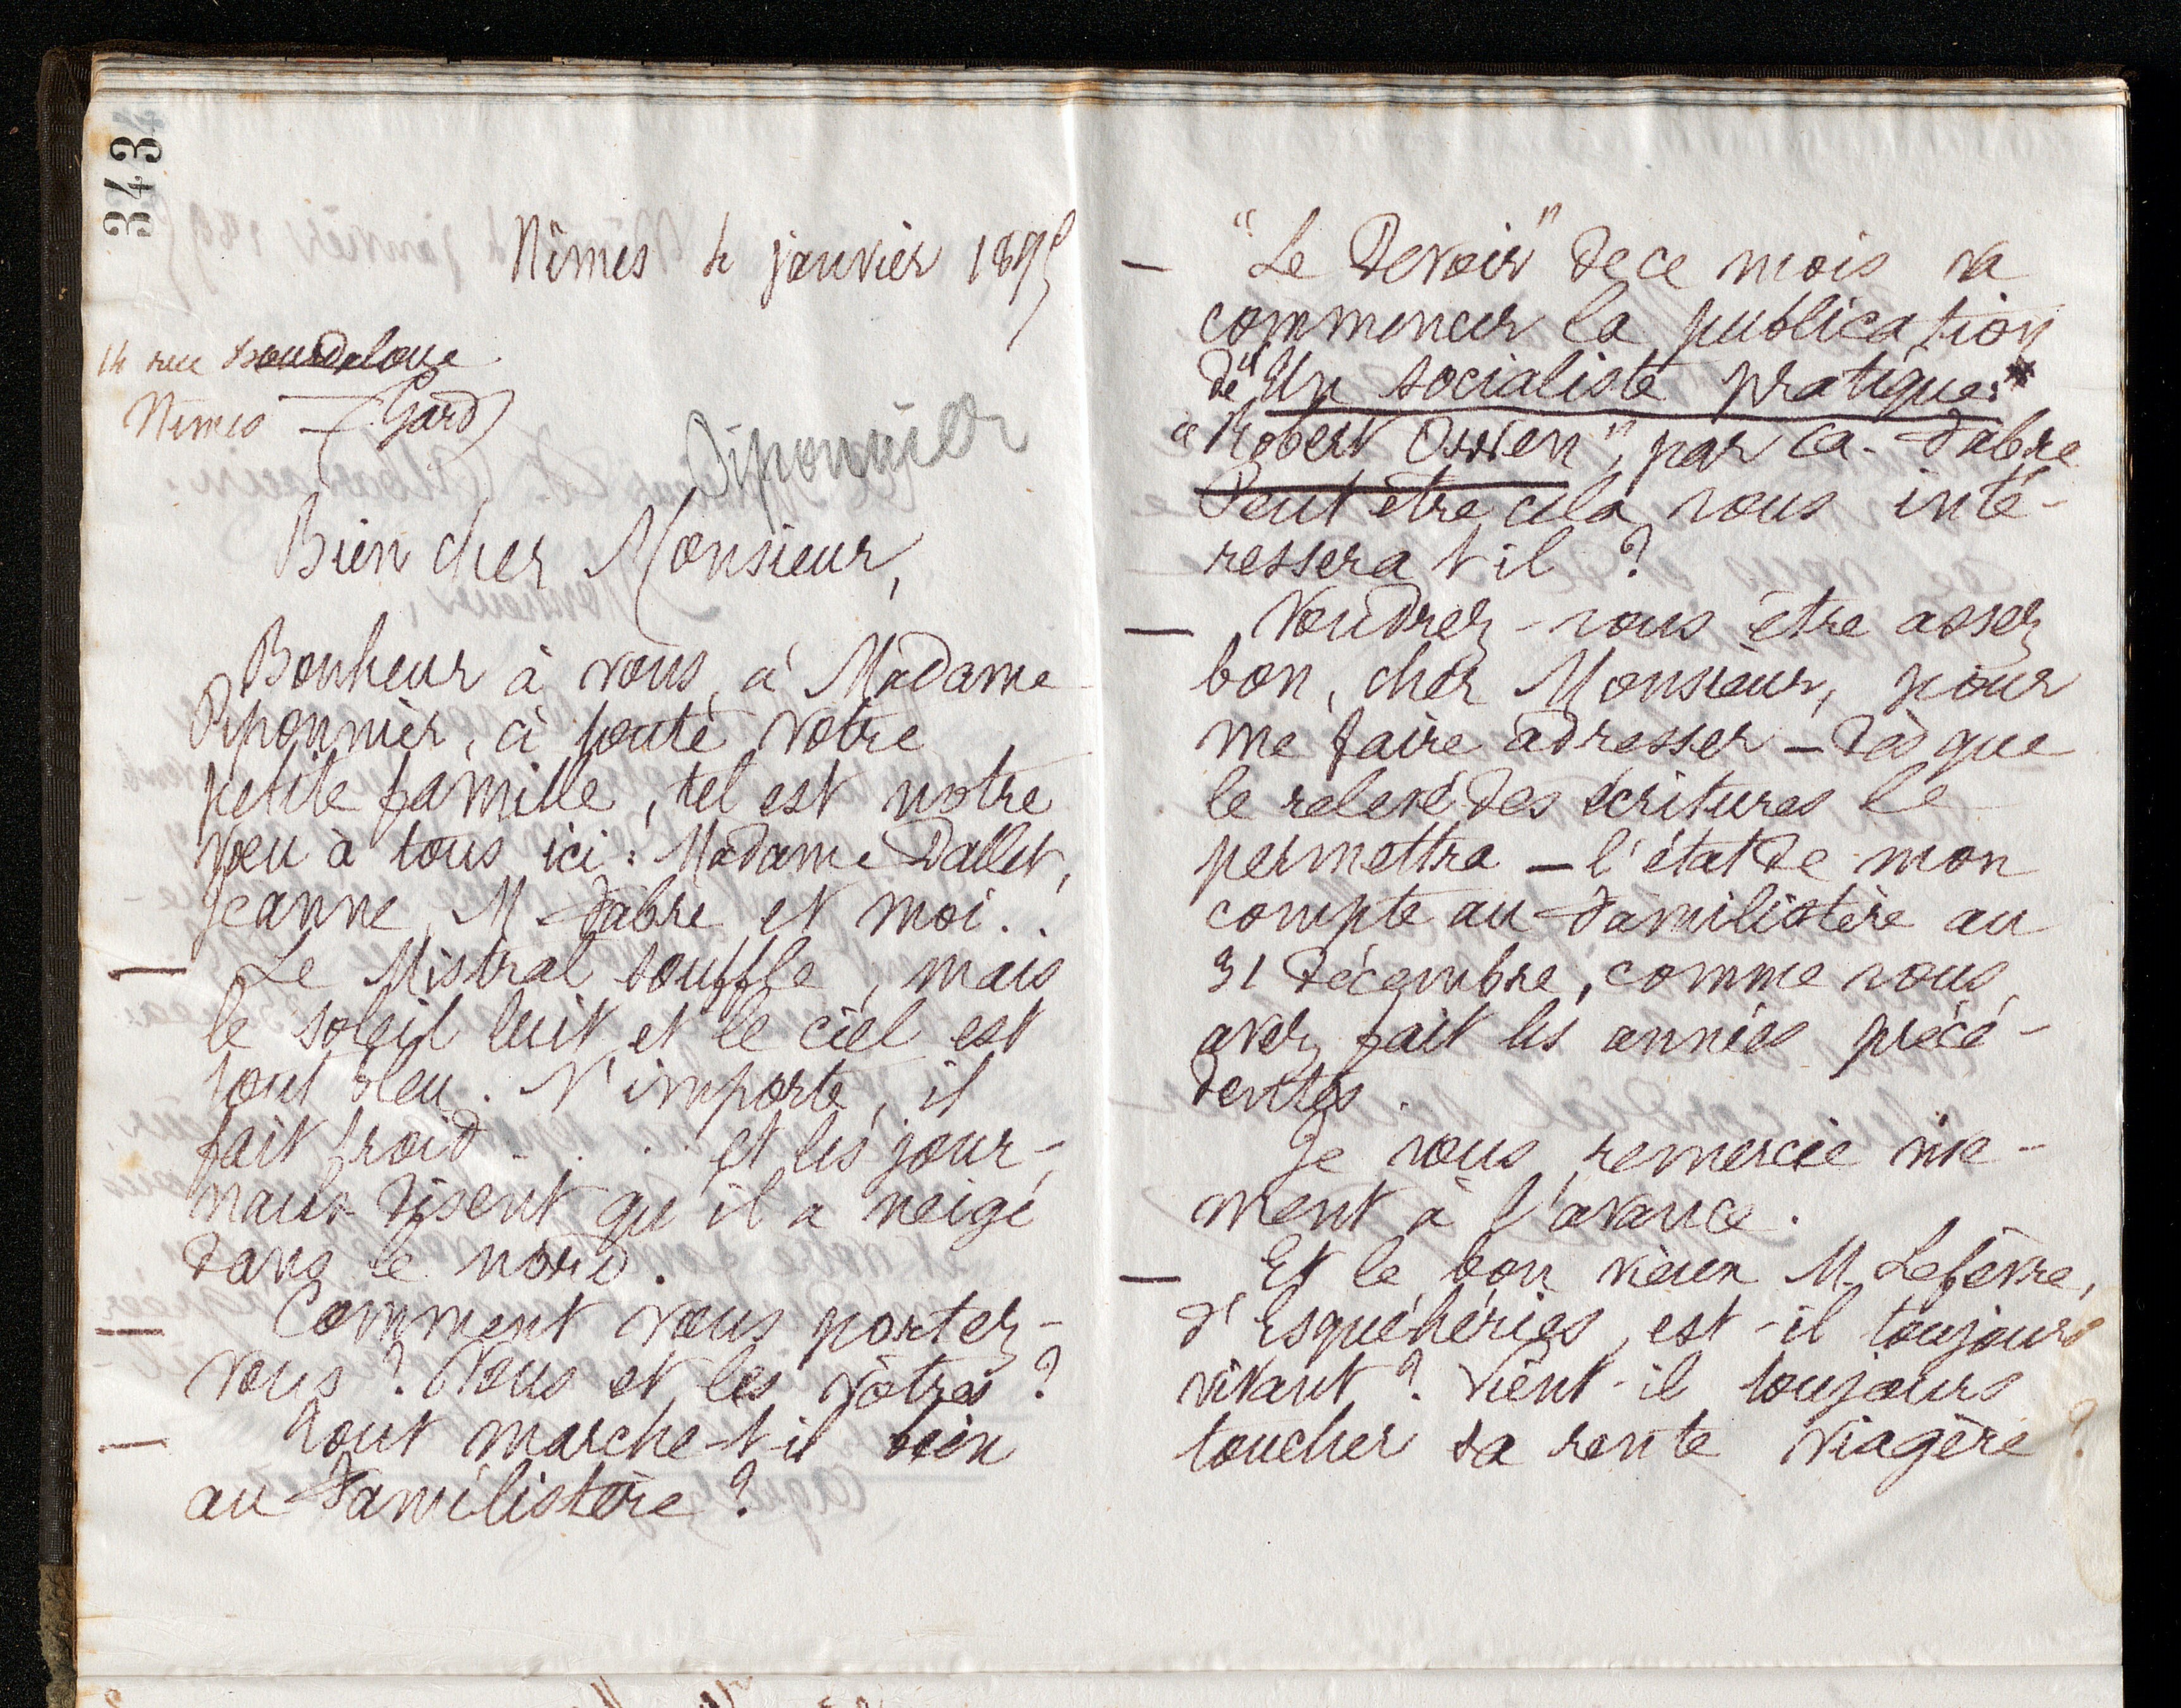 343
Nîmes 4 janvier 1895
14 rue Bourdaloue
Nîmes (Gard)
Piponnier
Bien cher Monsieur,
Bonheur à vous, à Madame
Piponnier, à toute votre
petite famille, tel est notre
vœu à tous ici : Madame Dallet,
Jeanne, M. Fabre et moi..
— Le Mistral souffle, mais
le soleil luit et le ciel est
tout bleu. N'importe, il
fait froid - . . . et les jour-
naux disent qu'il a neigé
dans le nord.
— Comment vous portez-
vous ? Vous et les vôtres ?
— Tout marche-t-il bien
au Familistère ?
— "Le Devoir" de ce mois va
commencer la publication
de "Un socialiste pratique:
"Robert Owen", par A. Fabre
Peut être cela vous inté-
ressera t'il ?
— Voudrez-vous être assez
bon, cher Monsieur, pour
me faire adresser — dès que
le relevé des écritures le
permettra — l'état de mon
compte au Familistère au
31 décembre, comme vous
avez fait les années précé-
dentes.
Je vous remercie vive-
ment à l'avance.
— Et le bon vieux M. Lefèvre,
d'Esquéhéries, est-il toujours
vivant ? Vient-il toujours
toucher sa rente viagère ?